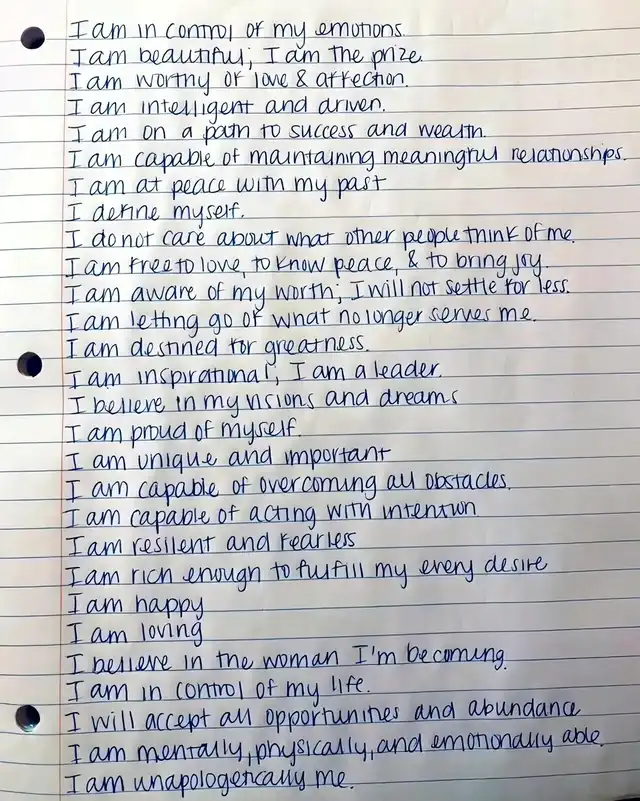 I am in control of my emotions
I am beautiful; I am the prize.
I am worthy of love & affection.
I am intelligent and driven.
I am on a path to success and wealth.
I am capable of maintaining meaningful relationships.
I am at peace with my past
I define myself.
I do not care about what other people think of me.
I am free to love, to know peace, & to bring joy.
I am aware of my worth; I will not settle for less.
I am letting go of what no longer serves me.
I am destined for greatness.
I am inspirational; I am a leader.
I believe in my visions and dreams
I am proud of myself.
I am unique and important
I am capable of overcoming all obstacles.
I am capable of acting with intention
I am resilent and fearless
I am rich enough to fulfill my every desire
I am happy
I am loving
I believe in the woman I'm becoming.
I am in control of my life.
I will accept all opportunities and abundance
I am mentally, physically, and emotionally able.
I am unapologetically me.